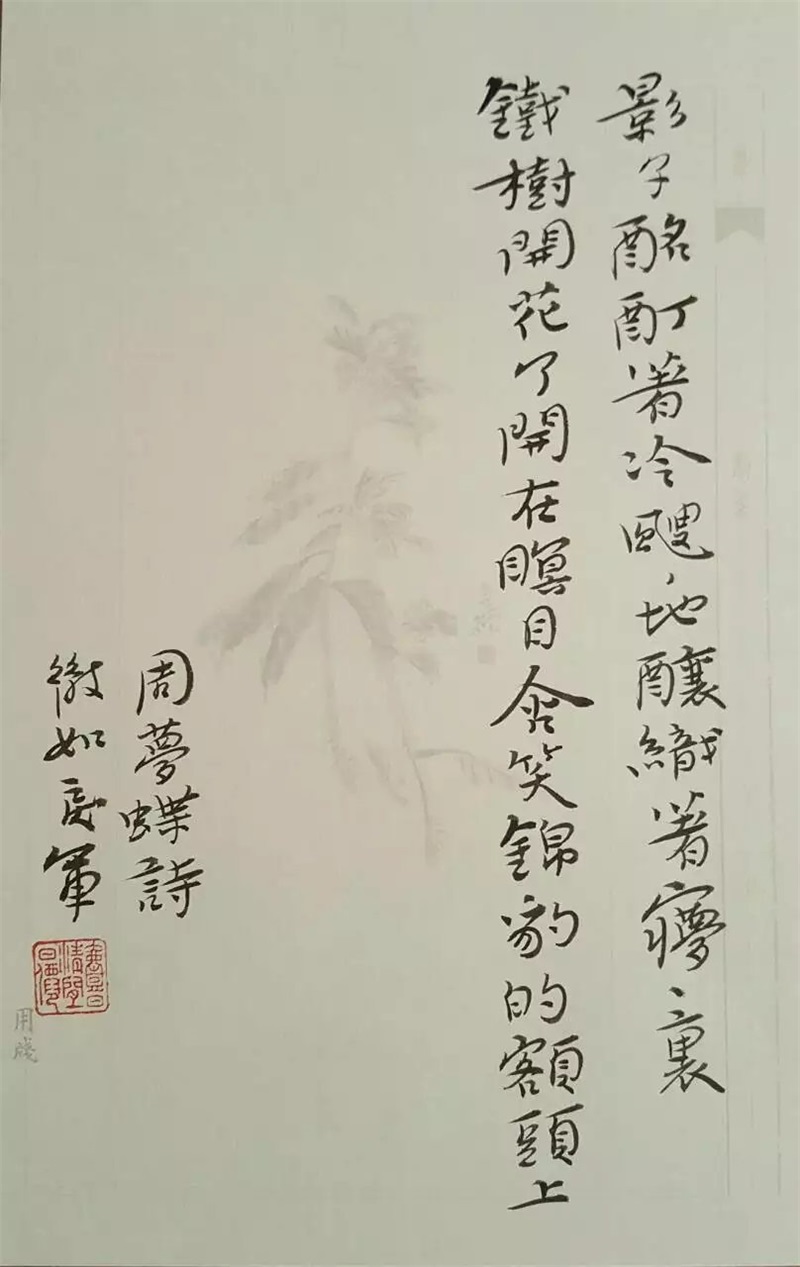 影子酩酊著冷颼、地釀織著㝱、裏
鐵樹開花了開在瞑目含笑錦豹的額頭上
周夢蝶詩
如 軍
用牋